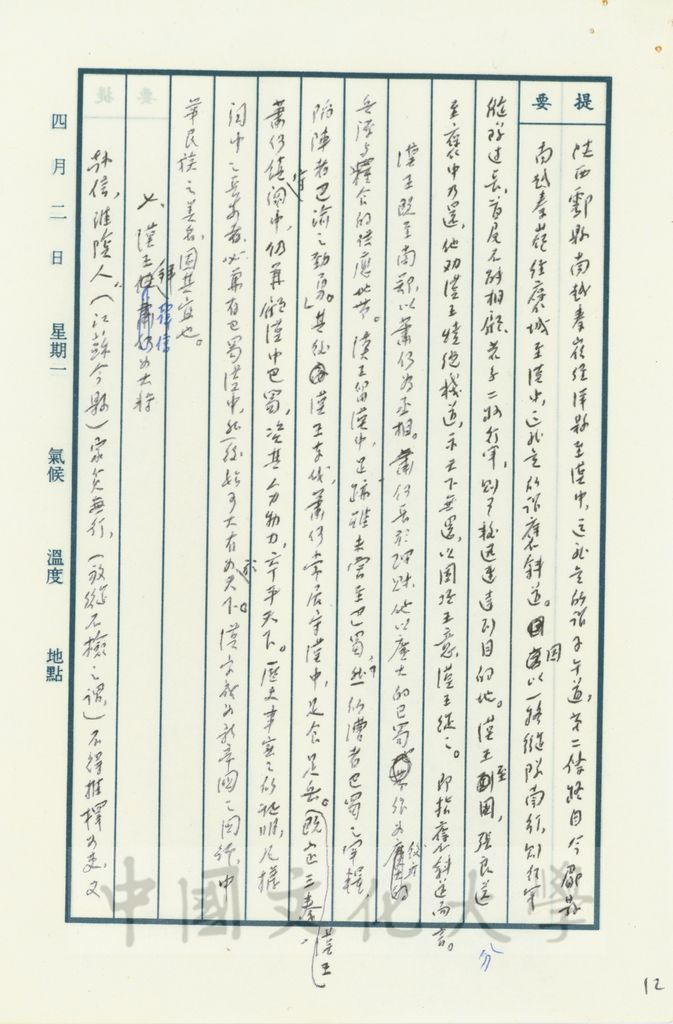 提要
陝西鄠縣南越秦嶺經洋縣至漢中，這就是所謂子午道，第二條路自今郿縣
南越秦嶺經褒城至漢中，這就是所謂褒斜道。因以一路縱隊南行，則行軍
縱隊過長，首尾不能相顧，若分二路行軍，則可較迅速達到目的地。漢王至國，張良送
至褒中乃還，他勸漢王燒絕棧道，示天下無還，以固項王意，漢王從之。即指褒斜道而言。
漢王既至南鄭，以蕭何為丞相。蕭何長於理財，他以廣大的巴蜀作為後方
兵源與糧食的供應地。漢王留漢中，足跡雖未嘗至巴蜀，然所漕者巴蜀之軍糧
陷陣者巴渝之勁勇。」其後漢王東伐，蕭何常居守漢中，足食足兵。既定三秦，漢王
蕭何鎮守關中，仍兼顧漢中巴蜀，資其人力物力，卒平天下。歷史事實之所證明，凡據
關中之長安者，必兼有巴蜀漢中，然後始可大有為於天下。漢字既為我帝國之國號，中
華民族之美名，固其宜也。
七、漢王拜韓信為大將
韓信，淮陰人。（江蘇今縣）家貧無行，（放縱不檢之謂，）不得推擇為吏，又
四月二日 星期一 氣候 溫度 地點
中國文化大學
12